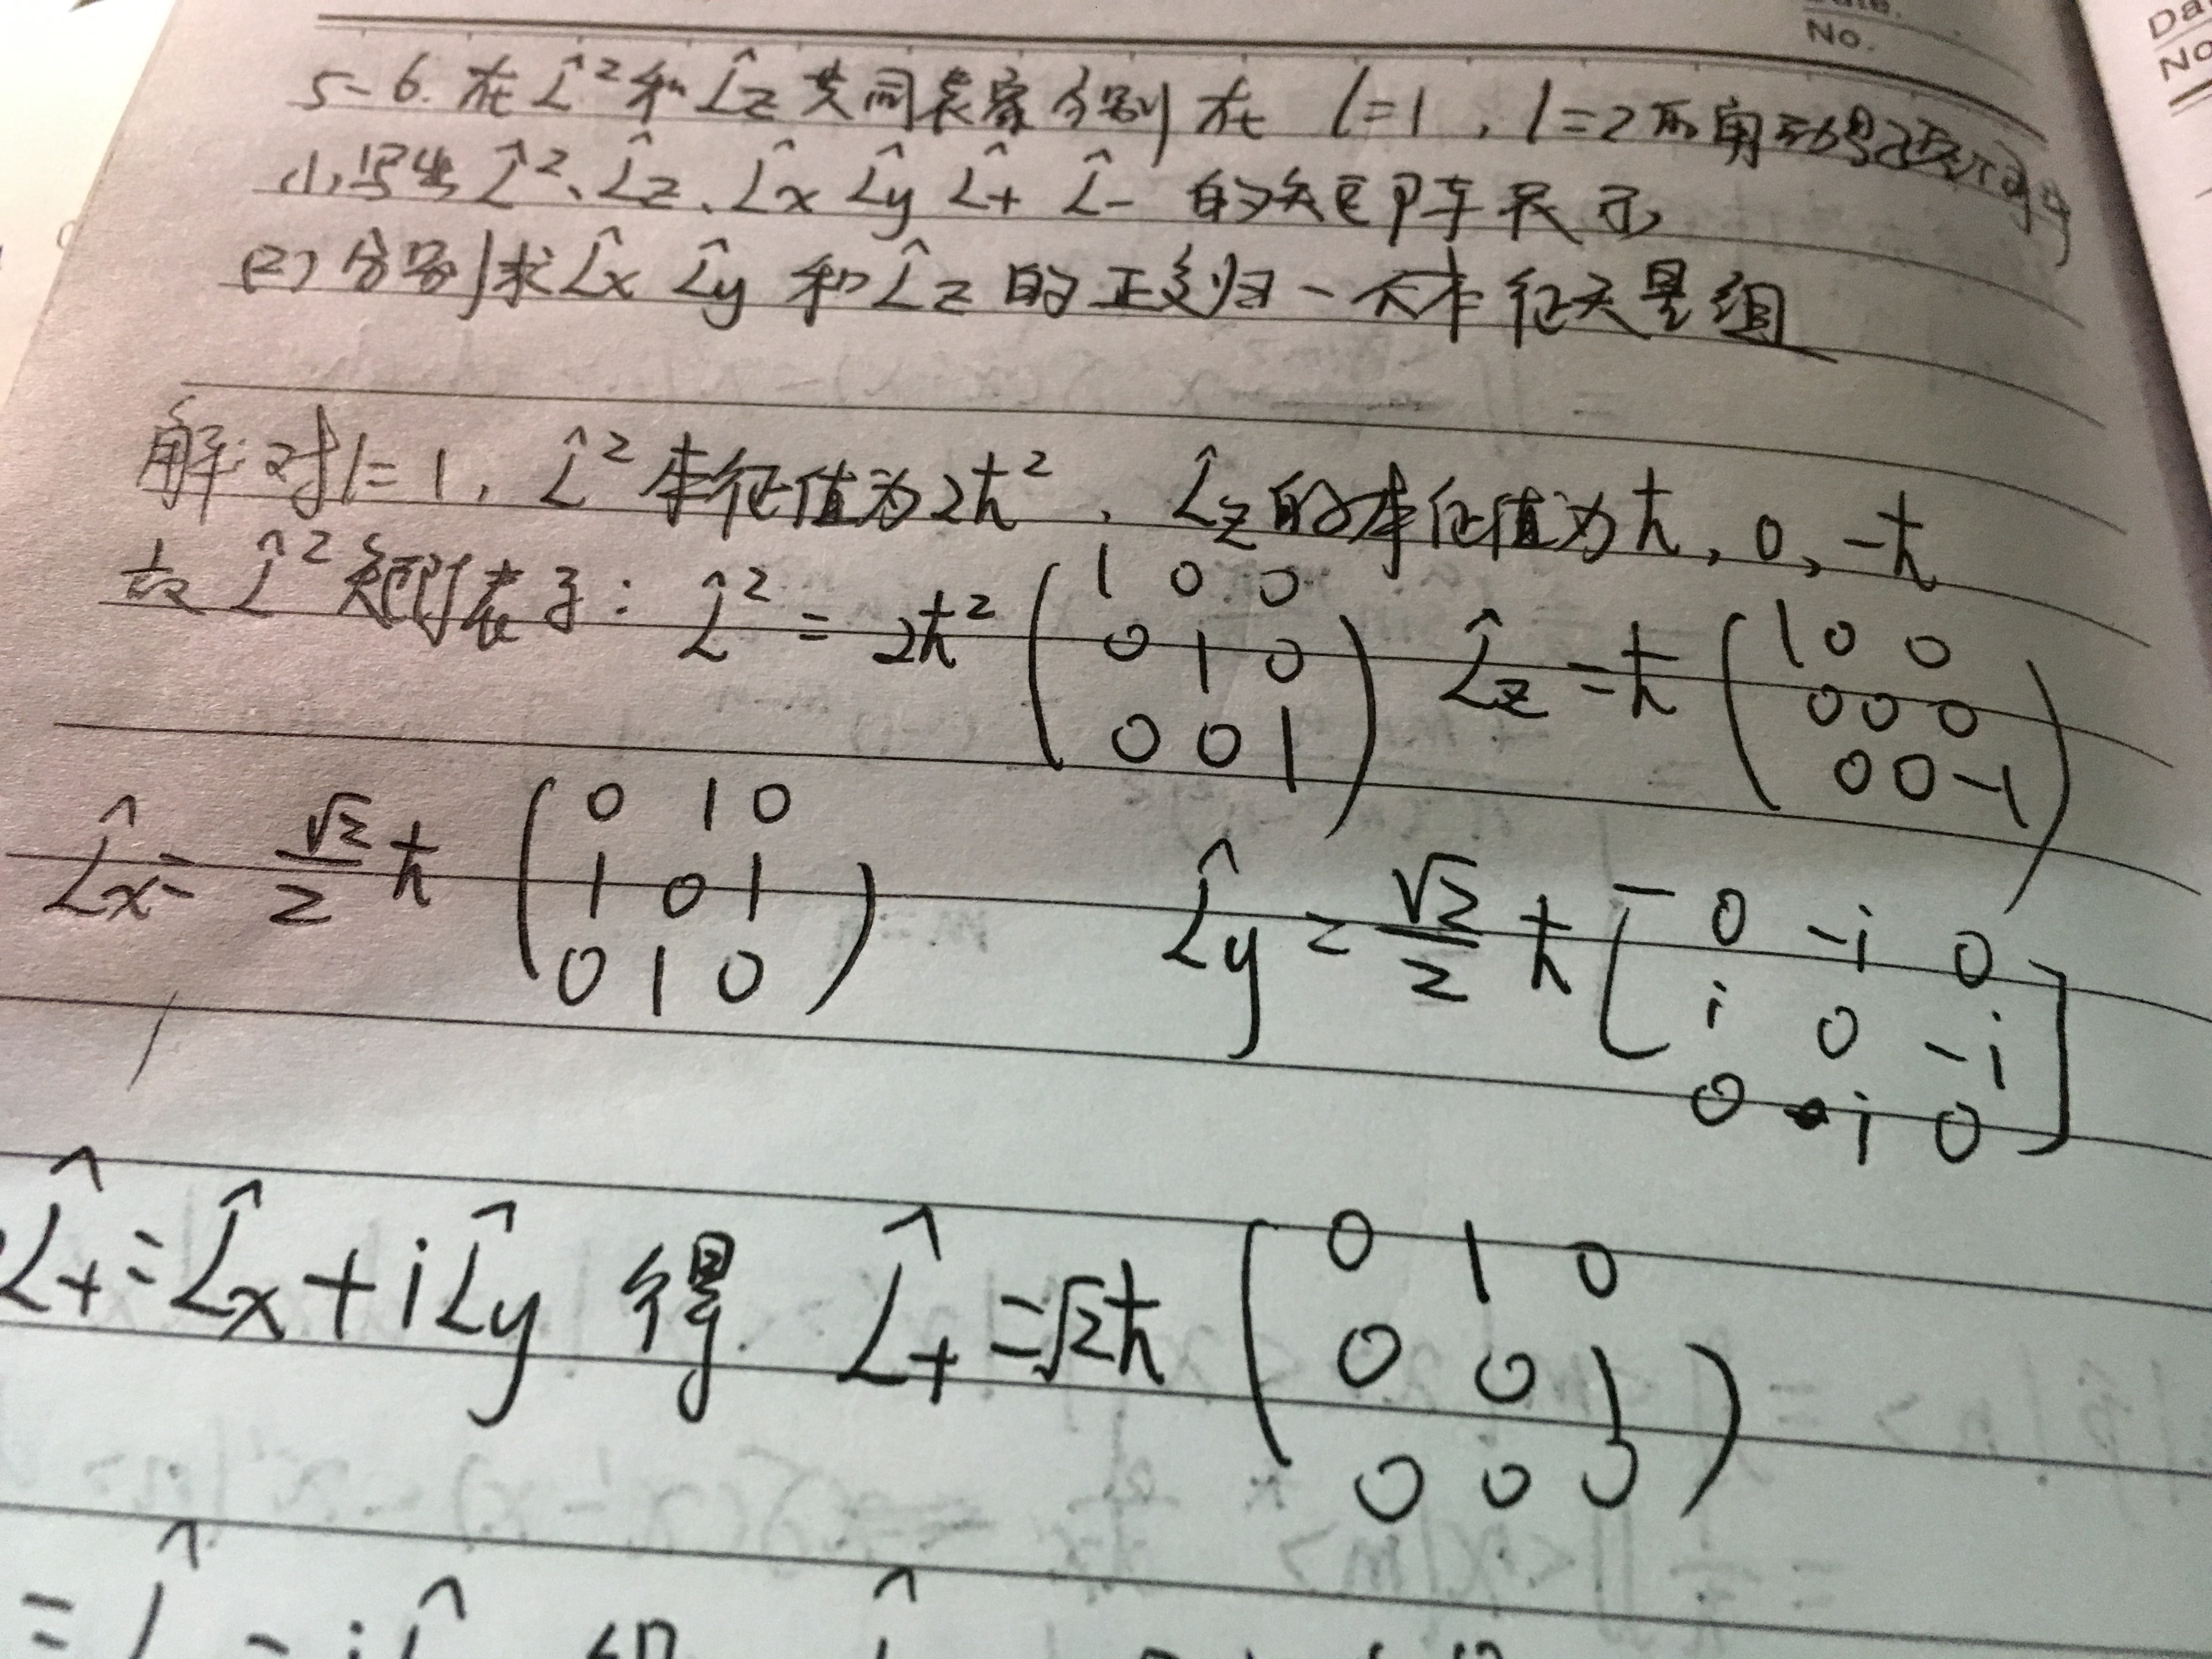 No.
Da
No
5-6. 在 L̂² 和 L̂z 共同表象分别在 l=1, l=2 的角动量
(1) 写出 L̂²、L̂z、L̂x L̂y L̂+ L̂- 的矩阵表示
(2) 分别求 L̂x L̂y 和 L̂z 的正交归一本征矢量组
解: 对 l=1, L̂² 本征值为 2ħ², L̂z 的本征值为 ħ, 0, -ħ
故 L̂² 矩阵表示: L̂² = 2ħ² ( 1 0 0 / 0 1 0 / 0 0 1 ) L̂z = ħ ( 1 0 0 / 0 0 0 / 0 0 -1 )
L̂x = √2/2 ħ ( 0 1 0 / 1 0 1 / 0 1 0 ) L̂y = √2/2 ħ [ 0 -i 0 / i 0 -i / 0 i 0 ]
L̂+ = L̂x + iL̂y 得 L̂+ = √2ħ ( 0 1 0 / 0 0 1 / 0 0 0 )